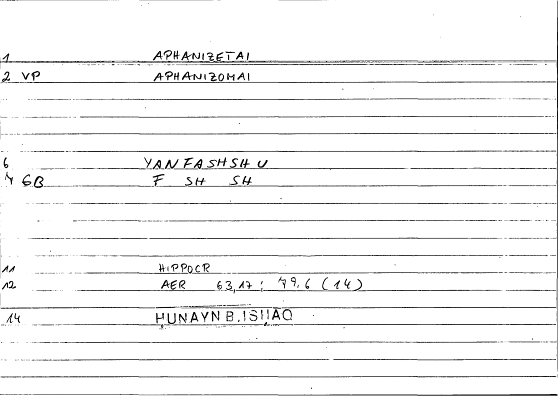 1 APHANIZETAI
2 VP APHANIZOMAI
6 YANFASHSHU
7 GB F SH SH
11 HIPPOCR
12 AER 63,17; 79,6 (14)
14 ḤUNAYN B. ISḤĀQ